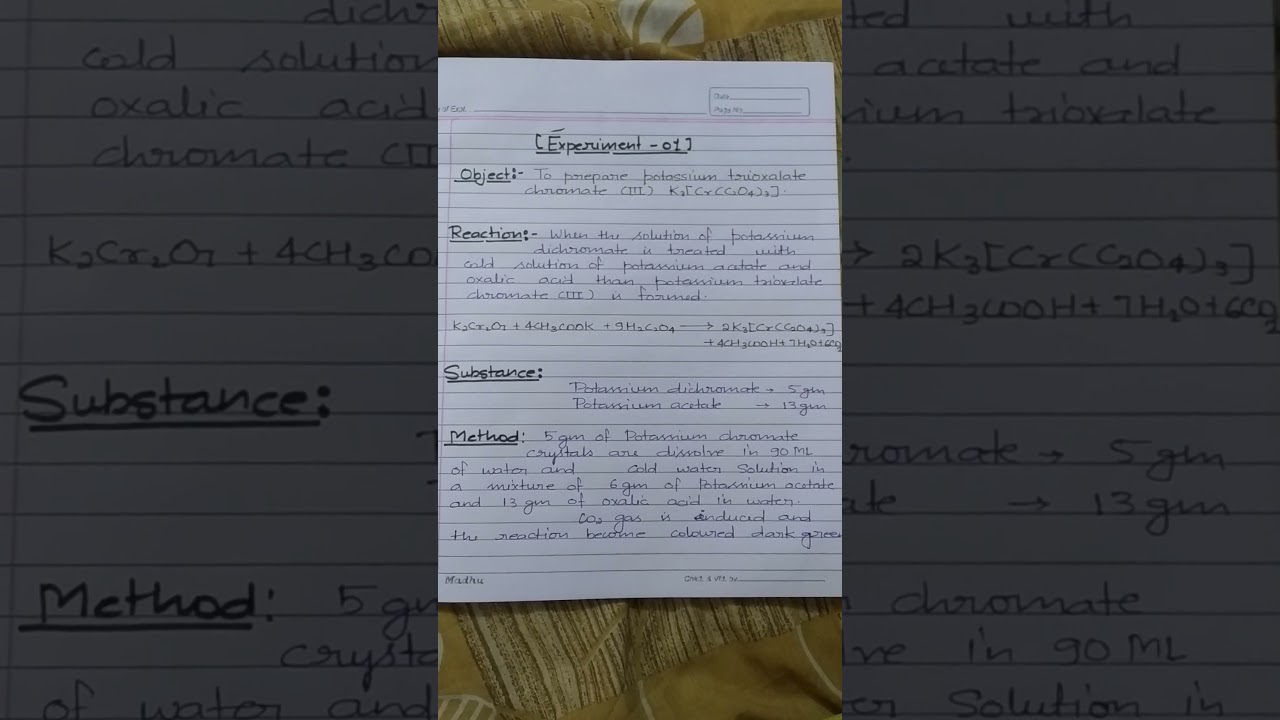 Date
Page No.
[Experiment - 01]
Object:- To prepare potassium trioxalate
chromate (III) K3[Cr(C2O4)3].
Reaction:- When the solution of potassium
dichromate is treated with
cold solution of potassium acetate and
oxalic acid than potassium trioxalate
chromate (III) is formed.
K2Cr2O7 + 4CH3COOK + 9H2C2O4 → 2K3[Cr(C2O4)3]
+ 4CH3COOH + 7H2O + 6CO2
Substance:
Potassium dichromate → 5 gm
Potassium acetate → 13 gm
Method: 5 gm of Potassium chromate
crystals are dissolve in 90 ML
of water and cold water solution in
a mixture of 6 gm of Potassium acetate
and 13 gm of oxalic acid in water.
CO2 gas is induced and
the reaction become coloured dark gree
Madhu